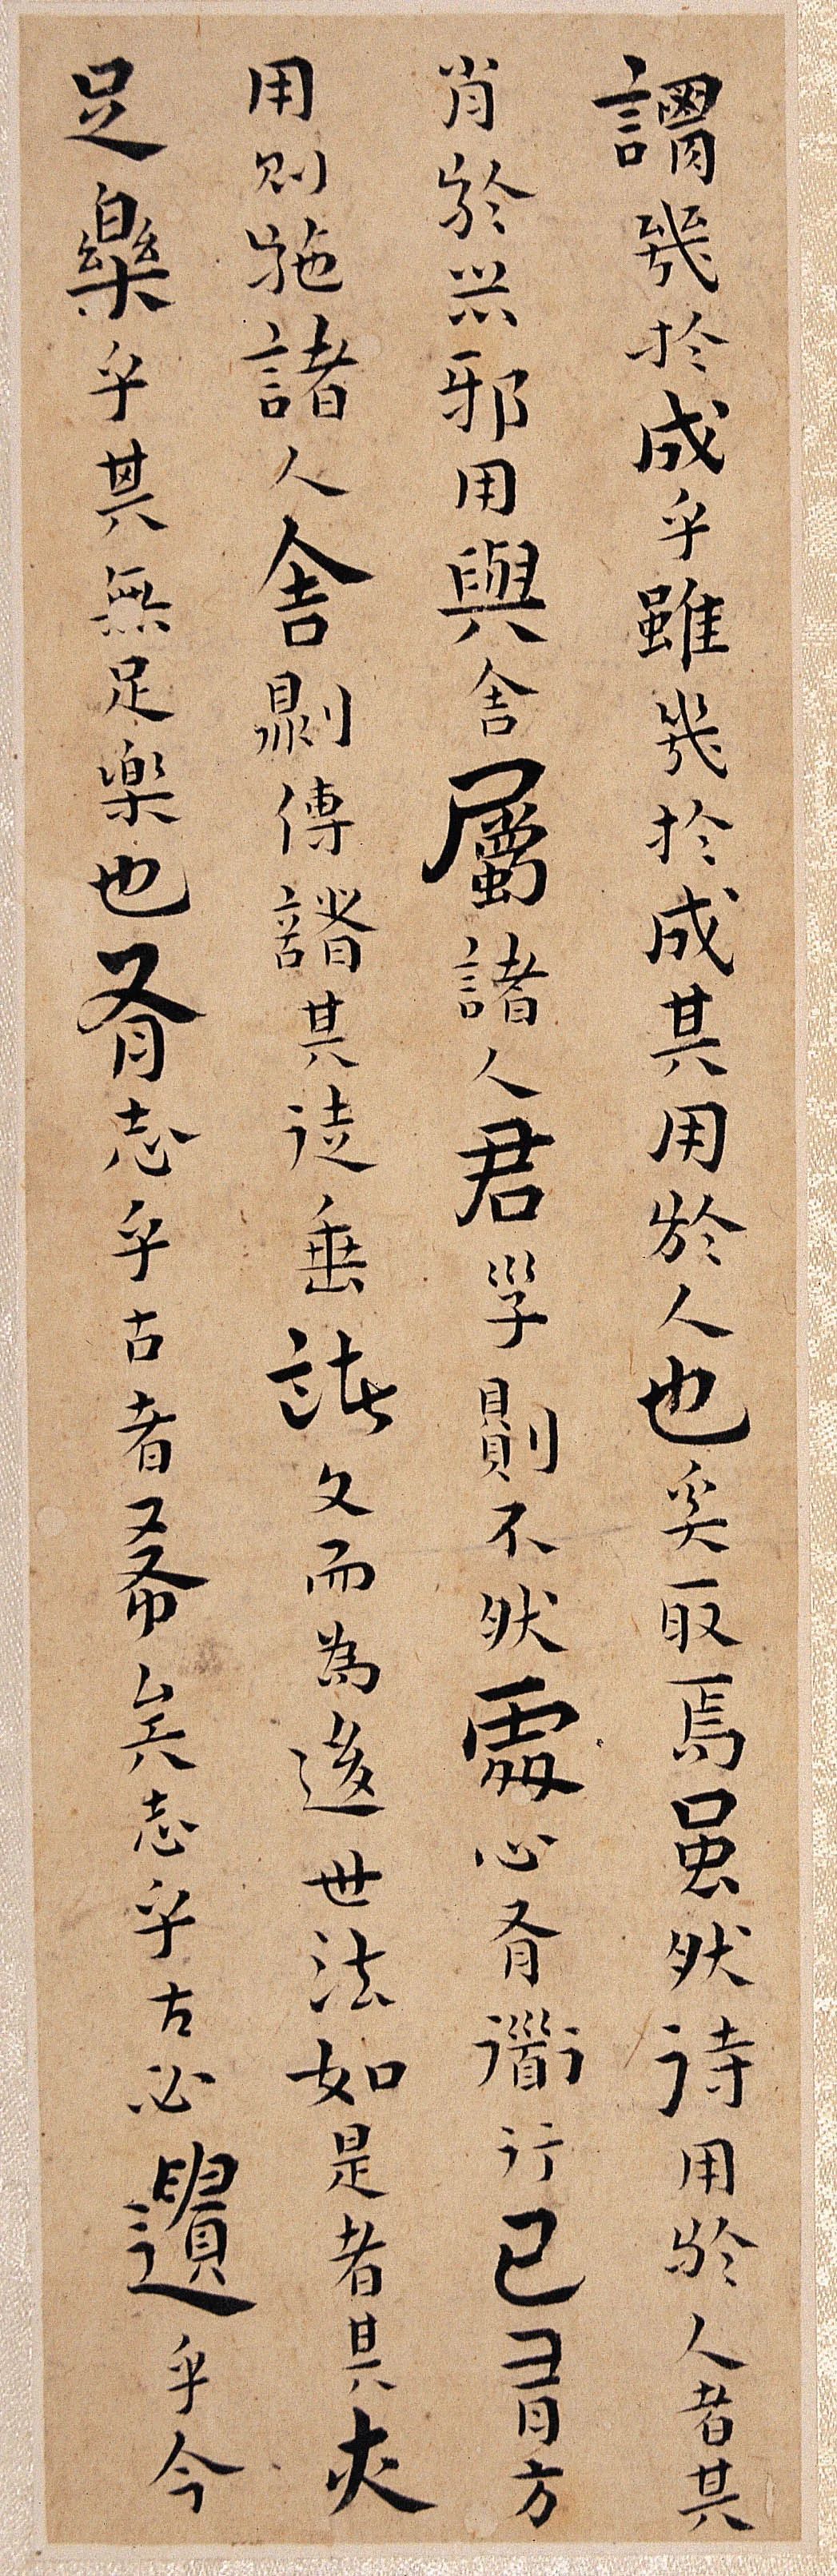 謂幾於成乎雖幾於成其用於人也奚取焉虽然待用於人者其
肖於器邪用與舍屬諸人君子則不然處心有道行己有方
用則施諸人舍則傳諸其徒垂諸文而為後世法如是者其亦
足樂乎其無足樂也有志乎古者希矣志乎古必遺乎今